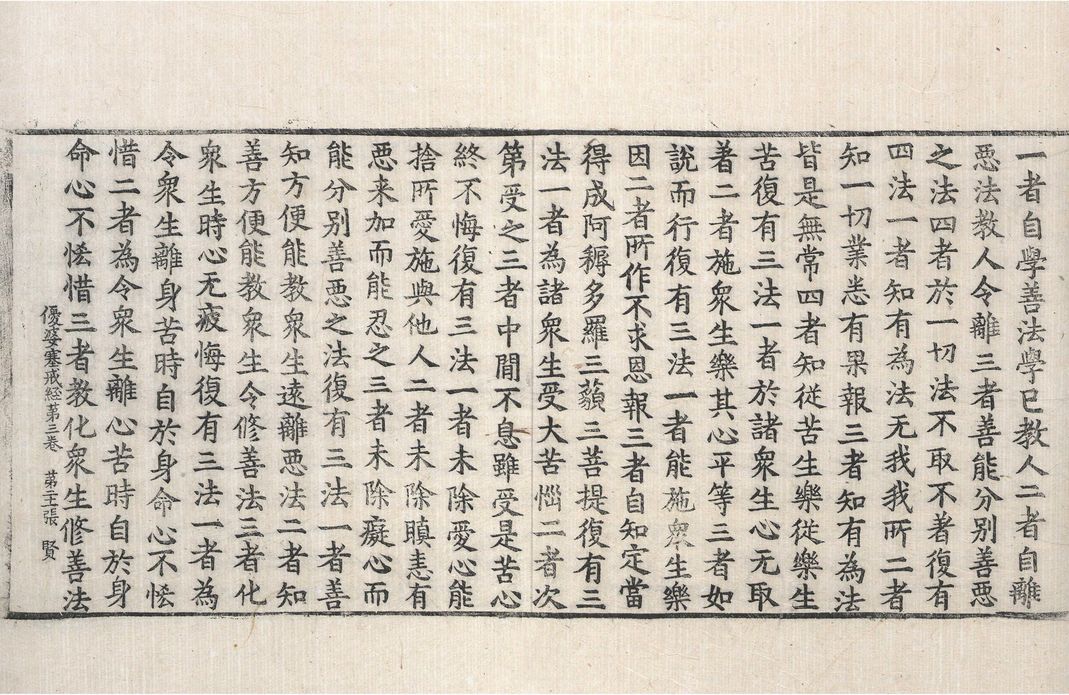 一者自學善法學已教人二者自離
惡法教人令離三者善能分別善惡
之法四者於一切法不取不著復有
四法一者知有為法无我我所二者
知一切業悉有果報三者知有為法
皆是無常四者知從苦生樂從樂生
苦復有三法一者於諸衆生心无取
著二者施衆生樂其心平等三者如
說而行復有三法一者能施衆生樂
因二者所作不求恩報三者自知定當
得成阿耨多羅三藐三菩提復有三
法一者為諸衆生受大苦惱二者次
第受之三者中間不息雖受是苦心
終不悔復有三法一者未除愛心能
捨所愛施與他人二者未除瞋恚有
惡来加而能忍之三者未除癡心而
能分別善惡之法復有三法一者善
知方便能教衆生遠離惡法二者知
善方便能教衆生令修善法三者化
衆生時心无疲悔復有三法一者為
令衆生離身苦時自於身命心不恡
惜二者為令衆生離心苦時自於身
命心不恡惜三者教化衆生修善法
優婆塞戒經第三卷 第二十張 賢